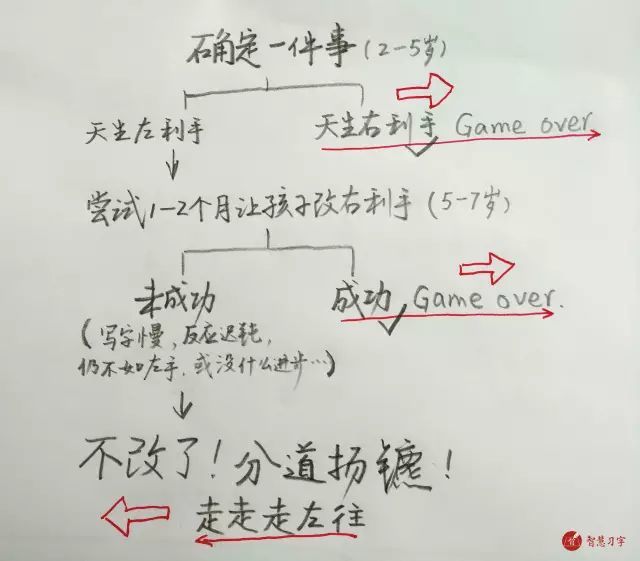 确定一件事(2-5岁)
天生左利手 天生右利手 Game over
尝试1-2个月让孩子改右利手(5-7岁)
未成功 成功 Game over.
(写字慢,反应迟钝,
仍不如左手,或没什么进步…)
不改了!分道扬镳!
走走走左往
智慧习字